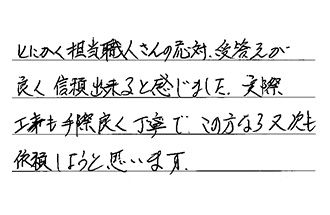 とにかく担当職人さんの応対、受答えが
良く信頼出来ると感じました。実際
工事も手際良く丁寧で、この方なら又次も
依頼しようと思います。